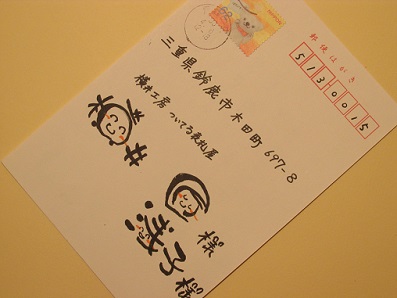 郵便はがき
5130015
三重県鈴鹿市木田町697-8
横井工房 ついてる表札屋
井
様
恵子様